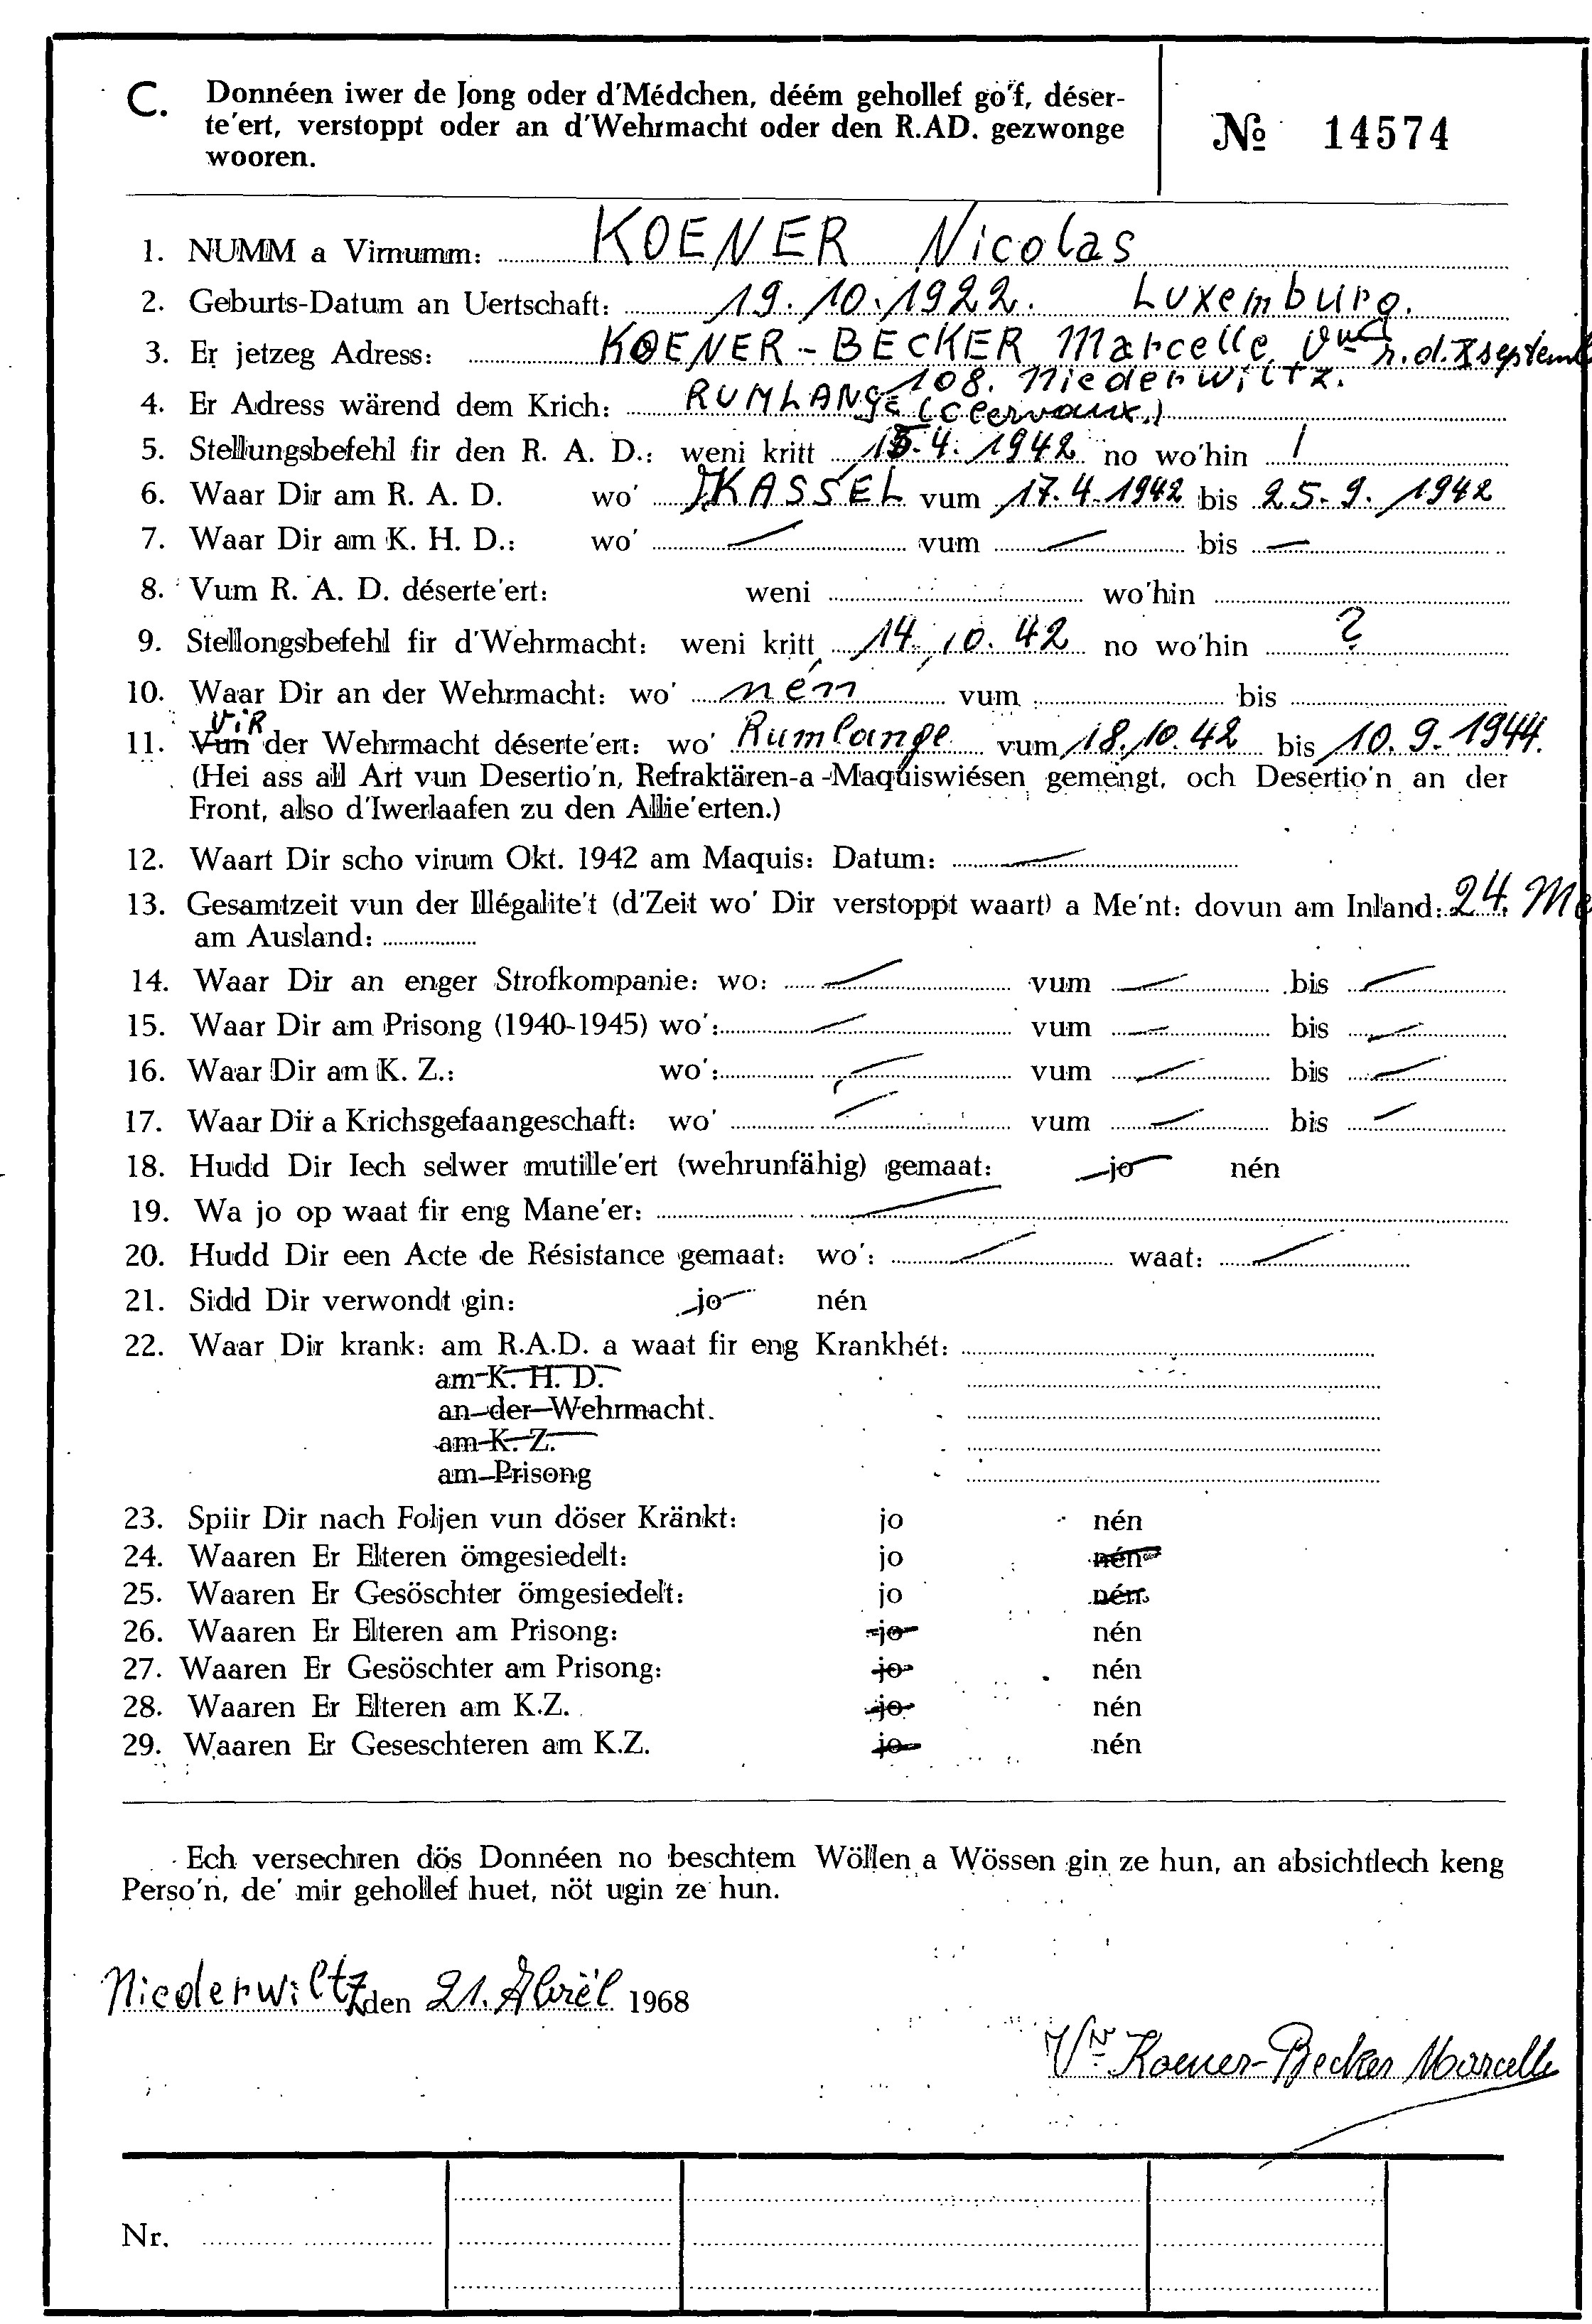 C. Donnéen iwer de Jong oder d'Médchen, déém gehollef go'f, déser-
te'ert, verstoppt oder an d'Wehrmacht oder den R.AD. gezwonge
wooren.
№ 14574
1. NUMM a Virnumm: KOENER Nicolas
2. Geburts-Datum an Uertschaft: 19.10.1922. Luxemburg.
3. Er jetzeg Adress: KOENER-BECKER Marcelle r.d.X septemb
108. Niederwiltz.
4. Er Adress wärend dem Krich: RUMLANGE (Clervaux.)
5. Stellungsbefehl fir den R. A. D.: weni kritt 15.4.1942 no wo'hin /
6. Waar Dir am R. A. D. wo' KASSEL vum 17.4.1942 bis 25.9.1942
7. Waar Dir am K. H. D.: wo' — vum — bis —
8. Vum R. A. D. déserte'ert: weni wo'hin
9. Stellongsbefehl fir d'Wehrmacht: weni kritt 14.10.42 no wo'hin ?
10. Waar Dir an der Wehrmacht: wo' nén vum bis
ViR
11. Vun der Wehrmacht déserte'ert: wo' Rumlange vum 18.10.42 bis 10.9.1944.
(Hei ass all Art vun Desertio'n, Refraktären-a-Maquiswiésen gemengt, och Desertio'n an der
Front, also d'Iwerlaafen zu den Allie'erten.)
12. Waart Dir scho virum Okt. 1942 am Maquis: Datum: —
13. Gesamtzeit vun der Illégalite't (d'Zeit wo' Dir verstoppt waart) a Me'nt: dovun am Inland: 24. Me
am Ausland:
14. Waar Dir an enger Strofkompanie: wo: — vum — bis —
15. Waar Dir am Prisong (1940-1945) wo': — vum — bis —
16. Waar Dir am K. Z.: wo': — vum — bis —
17. Waar Dir a Krichsgefaangeschaft: wo' — vum — bis —
18. Hudd Dir Iech selwer mutille'ert (wehrunfähig) gemaat: jo nén
19. Wa jo op waat fir eng Mane'er: —
20. Hudd Dir een Acte de Résistance gemaat: wo': — waat: —
21. Sidd Dir verwondt gin: jo nén
22. Waar Dir krank: am R.A.D. a waat fir eng Krankhét:
am K. H. D.
an der Wehrmacht.
am K. Z.
am Prisong
23. Spiir Dir nach Foljen vun döser Kränkt: jo nén
24. Waaren Er Elteren ömgesiedelt: jo nén
25. Waaren Er Gesöschter ömgesiedelt: jo nén
26. Waaren Er Elteren am Prisong: jo nén
27. Waaren Er Gesöschter am Prisong: jo nén
28. Waaren Er Elteren am K.Z. jo nén
29. Waaren Er Geseschteren am K.Z. jo nén
Ech versechren dös Donnéen no beschtem Wöllen a Wössen gin ze hun, an absichtlech keng
Perso'n, de' mir gehollef huet, nöt ugin ze hun.
Niederwiltz den 21. Abrёl 1968
Vve Koener-Becker Marcelle
Nr.